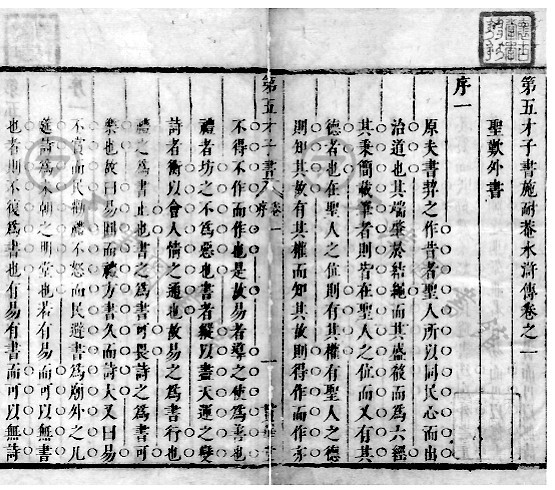 第五才子書施耐菴水滸傳卷之一
聖歎外書
序一
原夫書契之作昔者聖人所以同民心而出
治道也其端肇於結繩而其盛殽而為六經
其秉簡載筆者則皆在聖人之位而又有其
德者也在聖人之位則有其權有聖人之德
則知其故有其權而知其故則得作而作亦
第五才子書 卷一 序
不得不作而作也是故易者導之使為善也
禮者坊之不為惡也書者縱以盡天運之變
詩者衡以會人情之通也故易之為書行也
禮之為書止也書之為書可畏詩之為書可
樂也故曰易圓而禮方書久而詩大又曰易
不賞而民勸禮不怒而民避書為廟外之几
筵詩為未朝之明堂也若有易而可以無書
也者則不復為書也有易有書而可以無詩